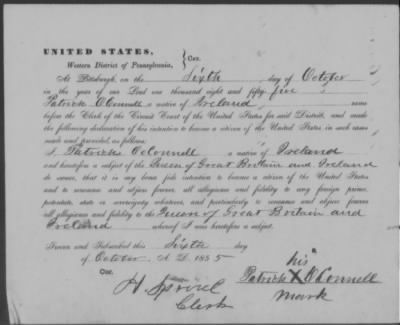 UNITED STATES,
Western District of Pennsylvania, } Oct.
At Pittsburgh, on the Sixth day of October
in the year of our Lord one thousand eight and fifty five
Patrick O'Connell a native of Ireland came
before the Clerk of the Circuit Court of the United States for said District, and made
the following declaration of his intention to become a citizen of the United States in such cases
made and provided, as follows:
I, Patrick O'Connell a native of Ireland
and heretofore a subject of the Queen of Great Britain and Ireland
do swear, that it is my bona fide intention to become a citizen of the United States
and to renounce and abjure forever all allegiance and fidelity to any foreign prince,
potentate, state or sovereignty whatever, and particularly to renounce and abjure forever
all allegiance and fidelity to the Queen of Great Britain and
Ireland whereof I was heretofore a subject.
Sworn and Subscribed this Sixth day
of October A. D. 1855
his
Patrick X O'Connell
mark
H Sproul
Clerk